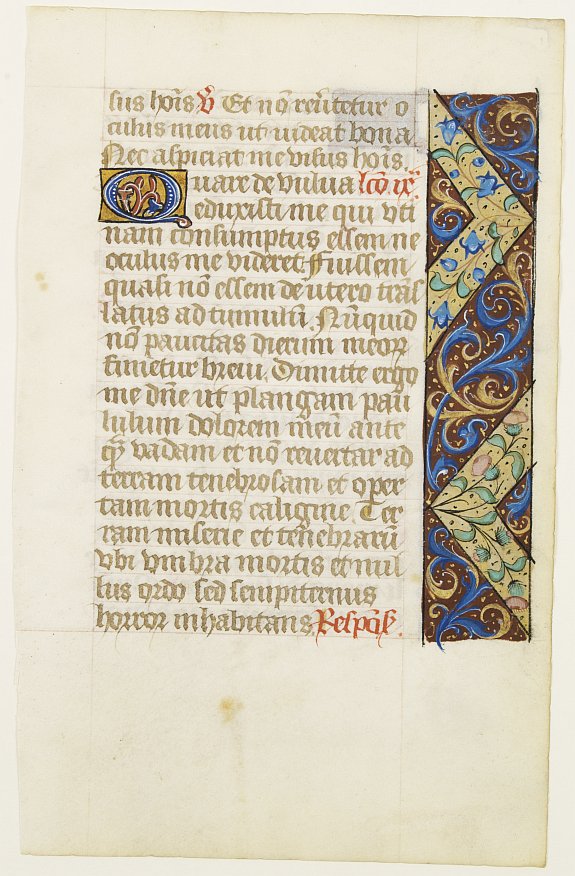 sus hoīs ꝟ Et nō reūtetur o
culus meus ut uideat bona
Nec aspiciat me visus hoīs.
Quare de vulua lcō ix
eduxisti me qui vti
nam consumptus essem ne
oculus me videret Fuissem
quasi nō essem de utero tras
latus ad tumulū. Nūquid
nō paucitas dierum meoꝝ
finietur breui. Dimitte ergo
me dn̄e ut plangam pau
lulum dolorem meū ante
qꝫ vadam et nō reuertar ad
terram tenebrosam et oper
tam mortis caligine. Ter
ram miserie et tenebrarū
vbi vmbra mortis et nul
lus ordo sed sempiternus
horror inhabitans Respōs.